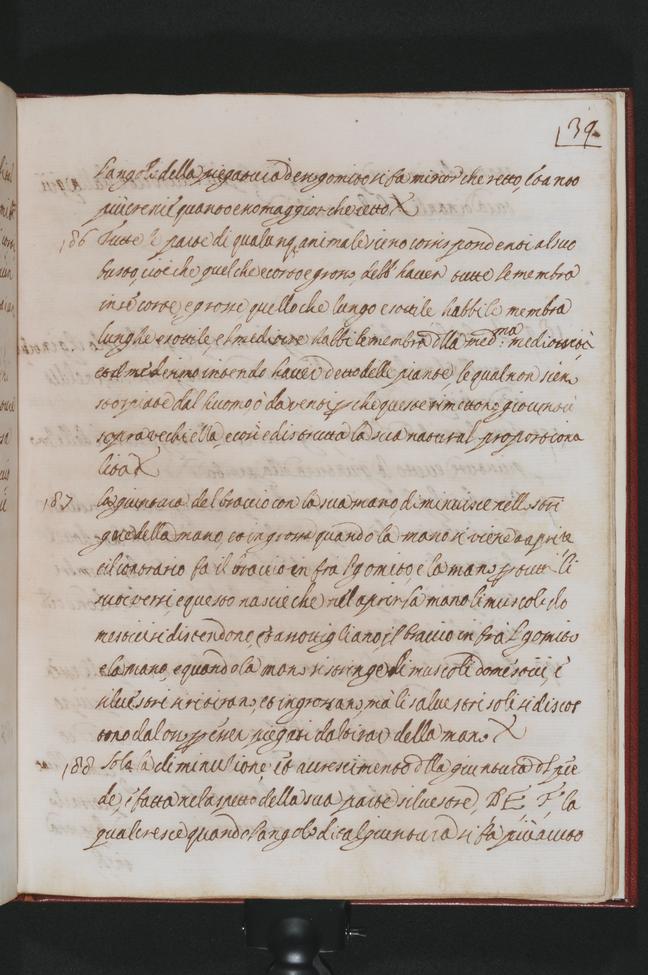 39
L'angolo della piegatura del gomito si fa minor che retto, tanto
più cresce il quanto e non maggior che retto. X
186 Tutte le parte di qualunq animale sieno correspondenti al suo
tutto, cioè che quel che e corto e grosso, debb haver tutte le membra
in sé corte, e grosse quello che lungo e sottile habbi le membra
lunghe e sottile, e'l mediocre habbi le membra della med.ma mediocrità
et il med.mo intendo haver detto delle piante, le qual non sieno
storpiate dal huomo ò da venti, p che queste rimettono gioventù
sopra vechiezza, e così è distrutta la sua natural proportiona
lità X
187 la giuntura del braccio con la sua mano diminuisce nello stri
gner della mano, et ingrossa quando la mano si viene a aprire
e il contrario fa il braccio in fra l gomito, e la mano p tutti li
suoi versi, e questo nasce che nell aprir la mano li muscoli do
mestici si distendono, et assottigliano, il braccio in fra l gomito
e la mano, e quando la mano si stringe li muscoli domestici, e
silvestri si ritirano, et ingrossano, mà li salvestri soli si discos
tono dal osso p esser piegati dal tirar della mano X
188 Sola la diminutione et accrescimento della giuntura del pie
de è fatta nel aspetto della sua parte silvestre, D E F la
qual cresce quando l'angolo di tal giuntura si fa più acuto